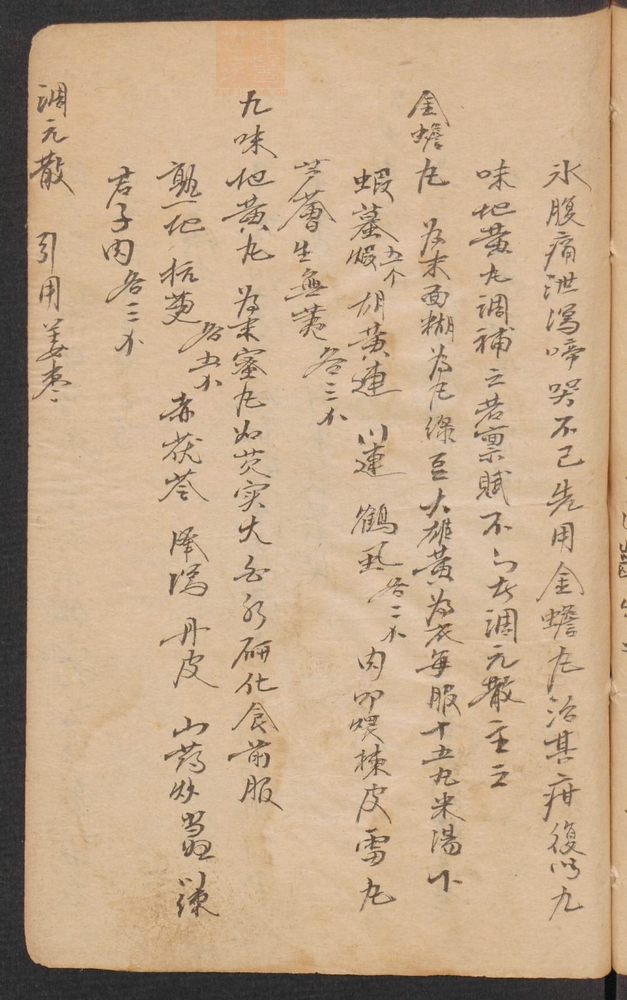 水腹痛泄瀉啼哭不已先用金蟾丸治其疳復以九
味地黃丸調補之若禀賦不足者調元散主之
金蟾丸 為末面糊為丸綠豆大雄黃為衣每服十五丸米湯下
蝦蟇煅五个 胡黃連 川連 鶴虱各二小 肉叩煨 楝皮 雷丸
芦薈 生蕪荑各三小
九味地黃丸 為末蜜丸如芡实大 研化食前服
熟地 萸各五小 赤茯苓 澤瀉 丹皮 山葯炒 當 川楝
君子肉各三小
調元散 引用姜枣